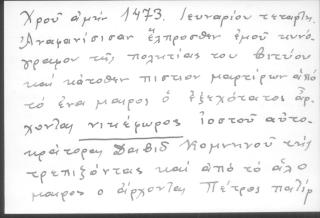 Χροῦ ἀμήν 1473. Ιενναρίου τετάρτη.
Ἀναφανίσισαν ἔλπροσθεν ἐμοῦ κυνό-
γραφον τῆς πολητίας τοῦ Βιτύου
καὶ κάτοθεν πιστιον μαρτίρων ἀπό
τό ἕνα μαιρος ὁ ἐξεχότατος ἄρ-
χονται νικέφωρος ἱοστοῦ αὐτο-
κράτορας Δαιβίδ Κομνηνοῦ τῆς
τρεπιζόντας καὶ ἀπό τό ἄλο
μαιρος ὁ ἄρχονται Πέτρος πατίρ